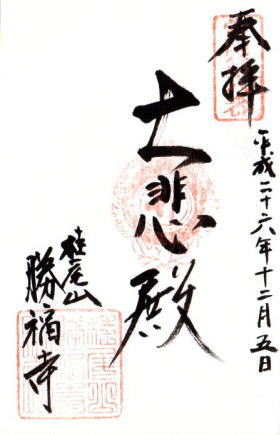 奉拝
平成二十六年十二月五日
大悲殿
桂尾山
勝福寺